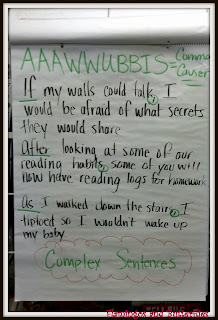 AAAWWUBBIS = Comma
Causer
If my walls could talk, I
would be afraid of what secrets
they would share
After looking at some of our
reading habits, some of you will
now have reading logs for homework
As I walked down the stairs, I
tiptoed so I wouldn't wake up
my baby.
Complex Sentences